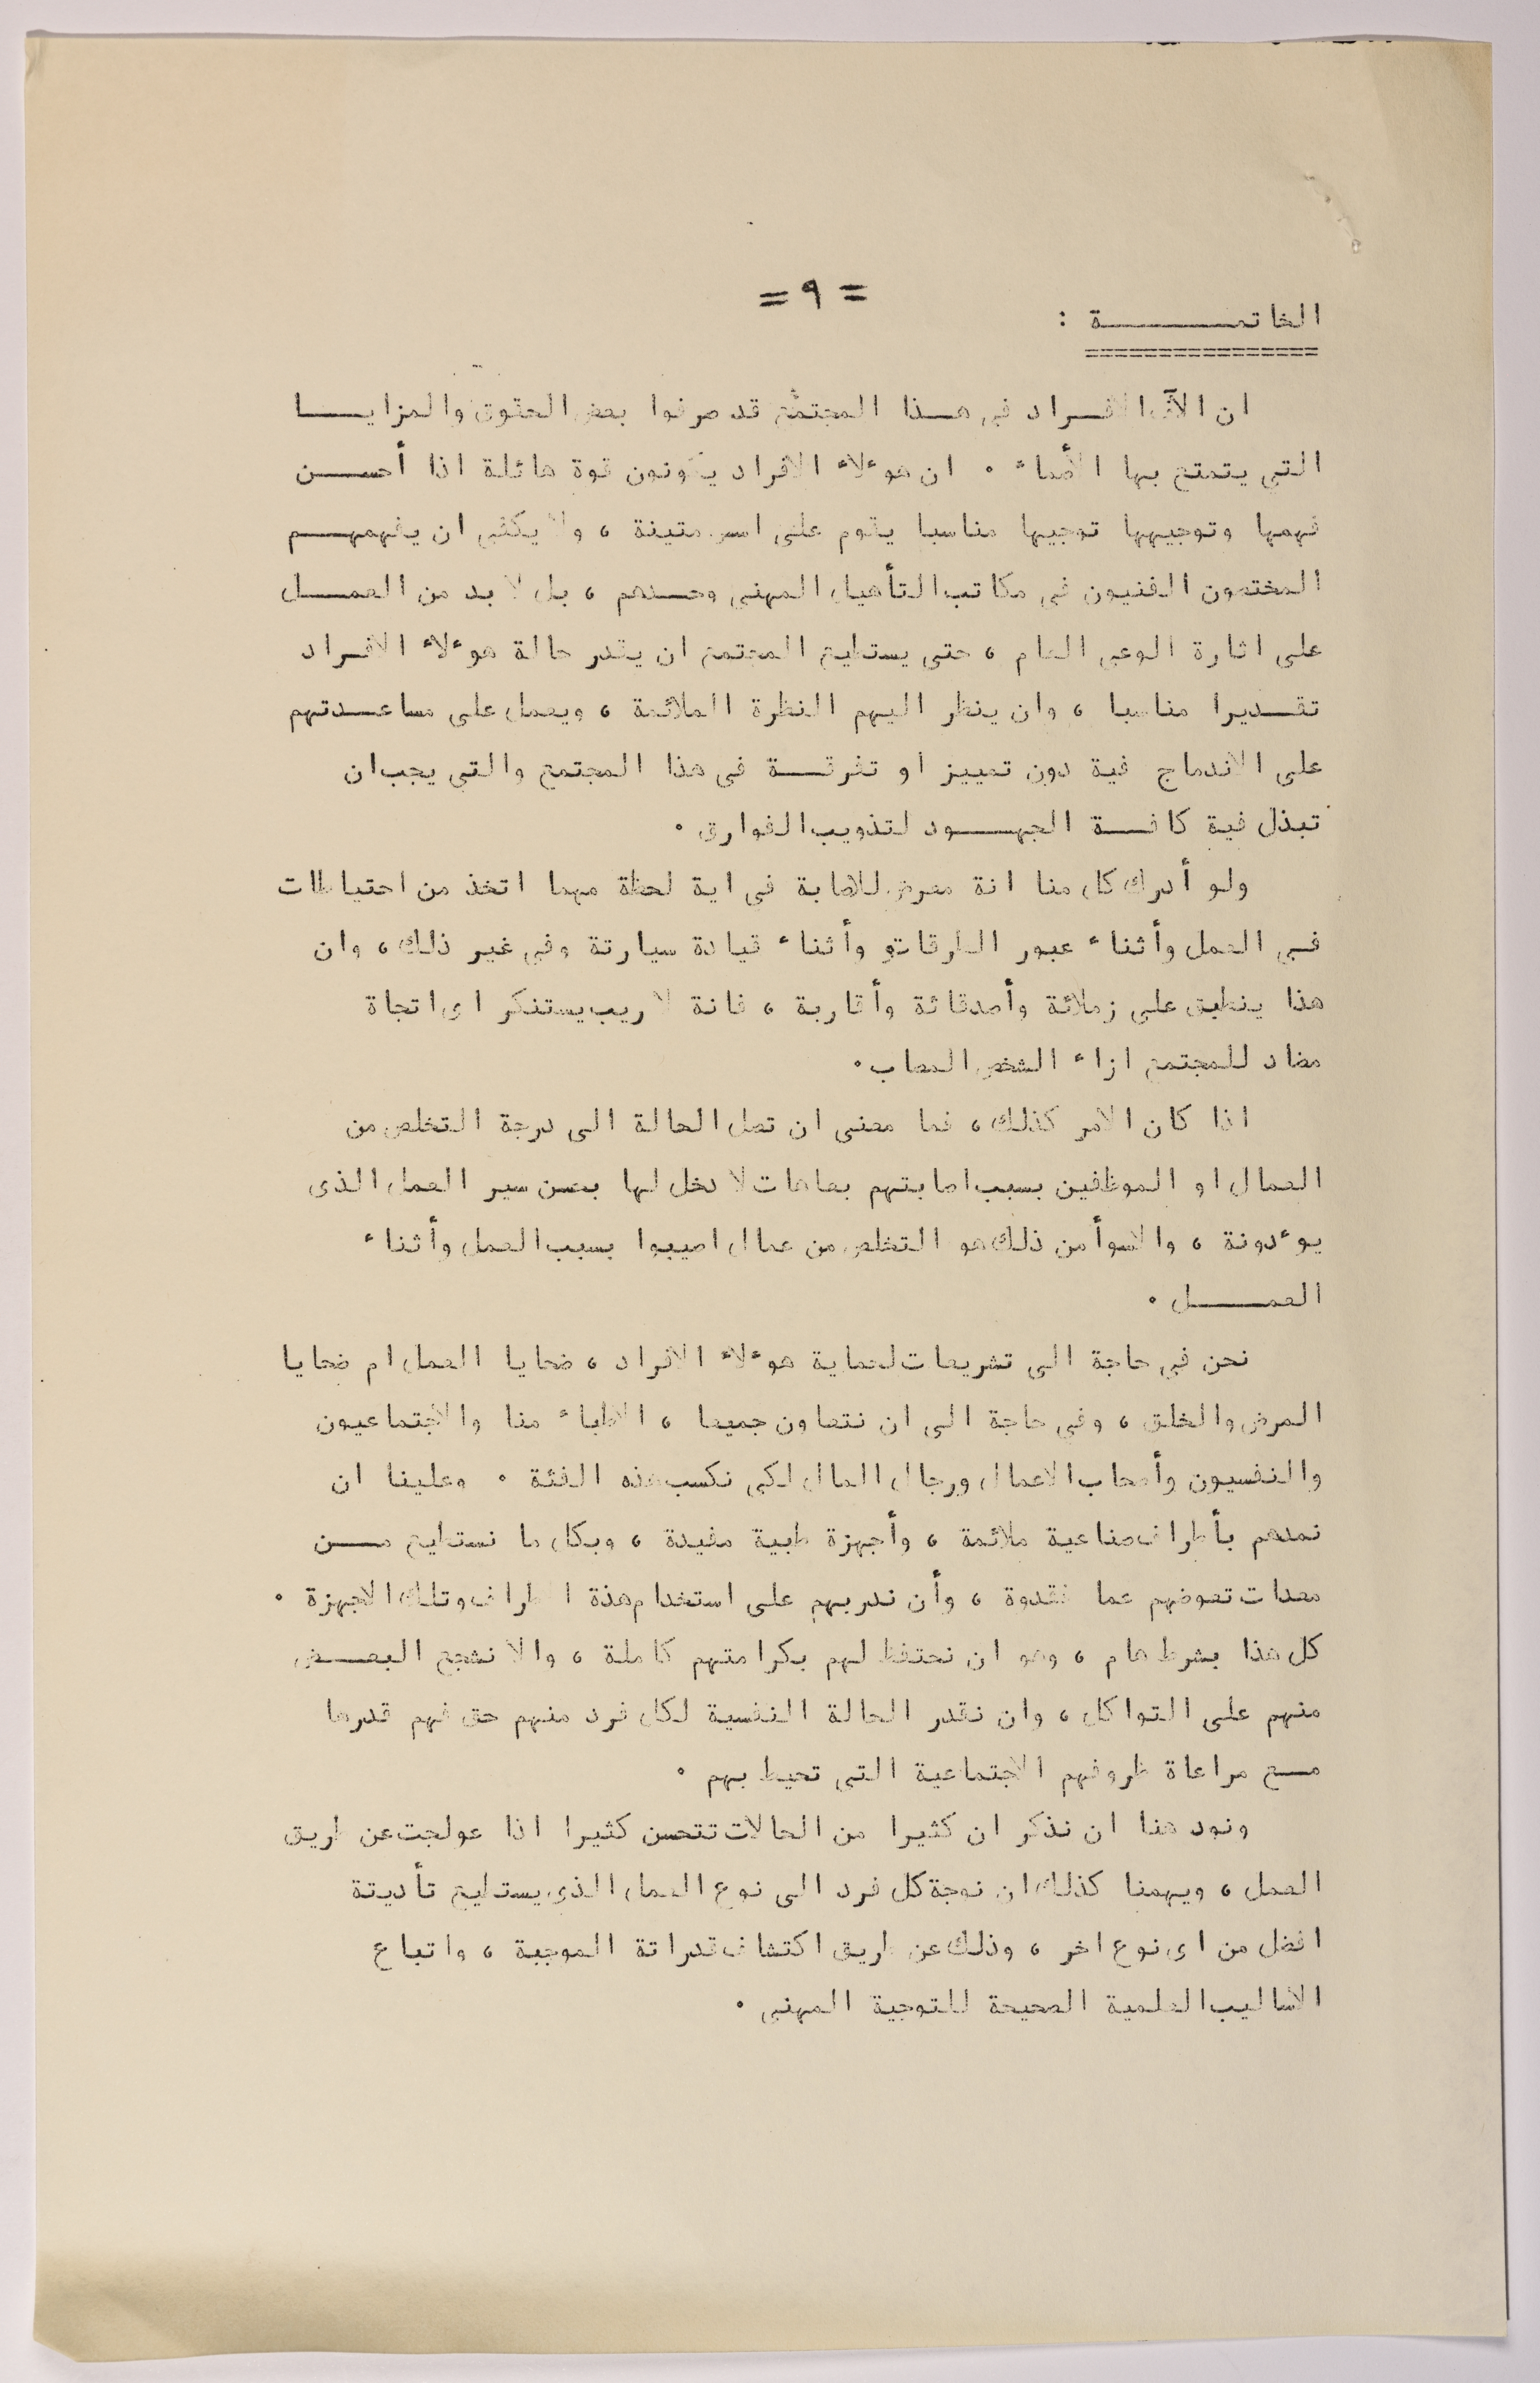 = ٩ =
الخاتمـــــــة :
ان الآف الافـــراد في هــذا المجتمع قد صرفوا بعض الحقوق والمزايـــا
التي يتمتع بها الأصحاء ٠ ان هوءلاء الافراد يكونون قوة هائلة اذا أحســـن
فهمها وتوجيهها توجيها مناسبا يقوم على اسس متينة ، ولا يكفي ان يفهمهـــم
المختصون الفنيون في مكاتب التأهيل المهني وحــدهم ، بل لا بد من العمــــل
على اثارة الوعي العام ، حتى يستطيع المجتمع ان يقدر حالة هوءلاء الافــراد
تقــديرا مناسبا ، وان ينظر اليهم النظرة الملائمة ، ويعمل على مساعــدتهم
على الاندماج فية دون تمييز او تفرقـــة في هذا المجتمع والتي يجب ان
تبذل فية كافـــة الجهـــود لتذويب الفوارق ٠
ولو أدرك كل منا انة معرض للاصابة في اية لحظة مهما اتخذ من احتياطات
فــي العمل وأثناء عبور الطرقات و وأثناء قيادة سيارتة وفي غير ذلك ، وان
هذا ينطبق على زملائة وأصدقائة وأقاربة ، فانة لا ريب يستنكر اى اتجاة
مضاد للمجتمع ازاء الشخص المصاب ٠
اذا كان الامر كذلك ، فما معنى ان تصل الحالة الى درجة التخلص من
العمال او الموظفين بسبب اصابتهم بعاهات لا دخل لها بحسن سير العمل الذى
يوءدونة ، والاسوأ من ذلك هو التخلص من عمال اصيبوا بسبب العمل وأثناء
العمـــــل ٠
نحن في حاجة الى تشريعات لحماية هوءلاء الافراد ، ضحايا العمل ام ضحايا
المرض والخلق ، وفي حاجة الى ان نتعاون جميعا ، الاطباء منا والاجتماعيون
والنفسيون وأصحاب الاعمال ورجال المال لكي نكسب هذه الفئة ٠ وعلينا ان
نمدهم بأطراف صناعية ملائمة ، وأجهزة طبية مفيدة ، وبكل ما نستطيع مـــن
معدات تعوضهم عما فقدوة ، وأن ندربهم على استخدام هذة الاطراف وتلك الاجهزة ٠
كل هذا بشرط هام ، وهو ان نحتفظ لهم بكرامتهم كاملة ، والا نشجع البعـــض
منهم على التواكل ، وان نقدر الحالة النفسية لكل فرد منهم حق فهم قدرها
مــع مراعاة ظروفهم الاجتماعية التي تحيط بهم ٠
ونود هنا ان نذكر ان كثيرا من الحالات تتحسن كثيرا اذا عولجت عن طريق
العمل ، ويهمنا كذلك ان نوجة كل فرد الى نوع العمل الذى يستطيع تأديتة
افضل من اى نوع اخر ، وذلك عن طريق اكتشاف قدراتة الموجبة ، واتباع
الاساليب العلمية الصحيحة للتوجية المهني ٠